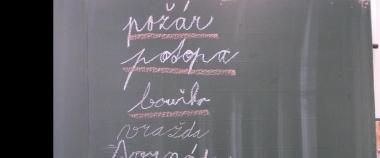 požár
potopa
bouřka
vražda